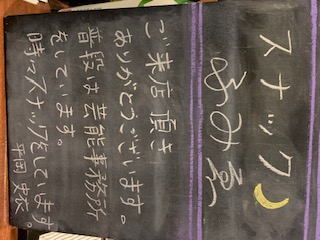 スナック
ふみゑ
ご来店頂き
ありがとうございます。
普段は芸能事務所
をしています。
時々スナックをしています
平田 史衣